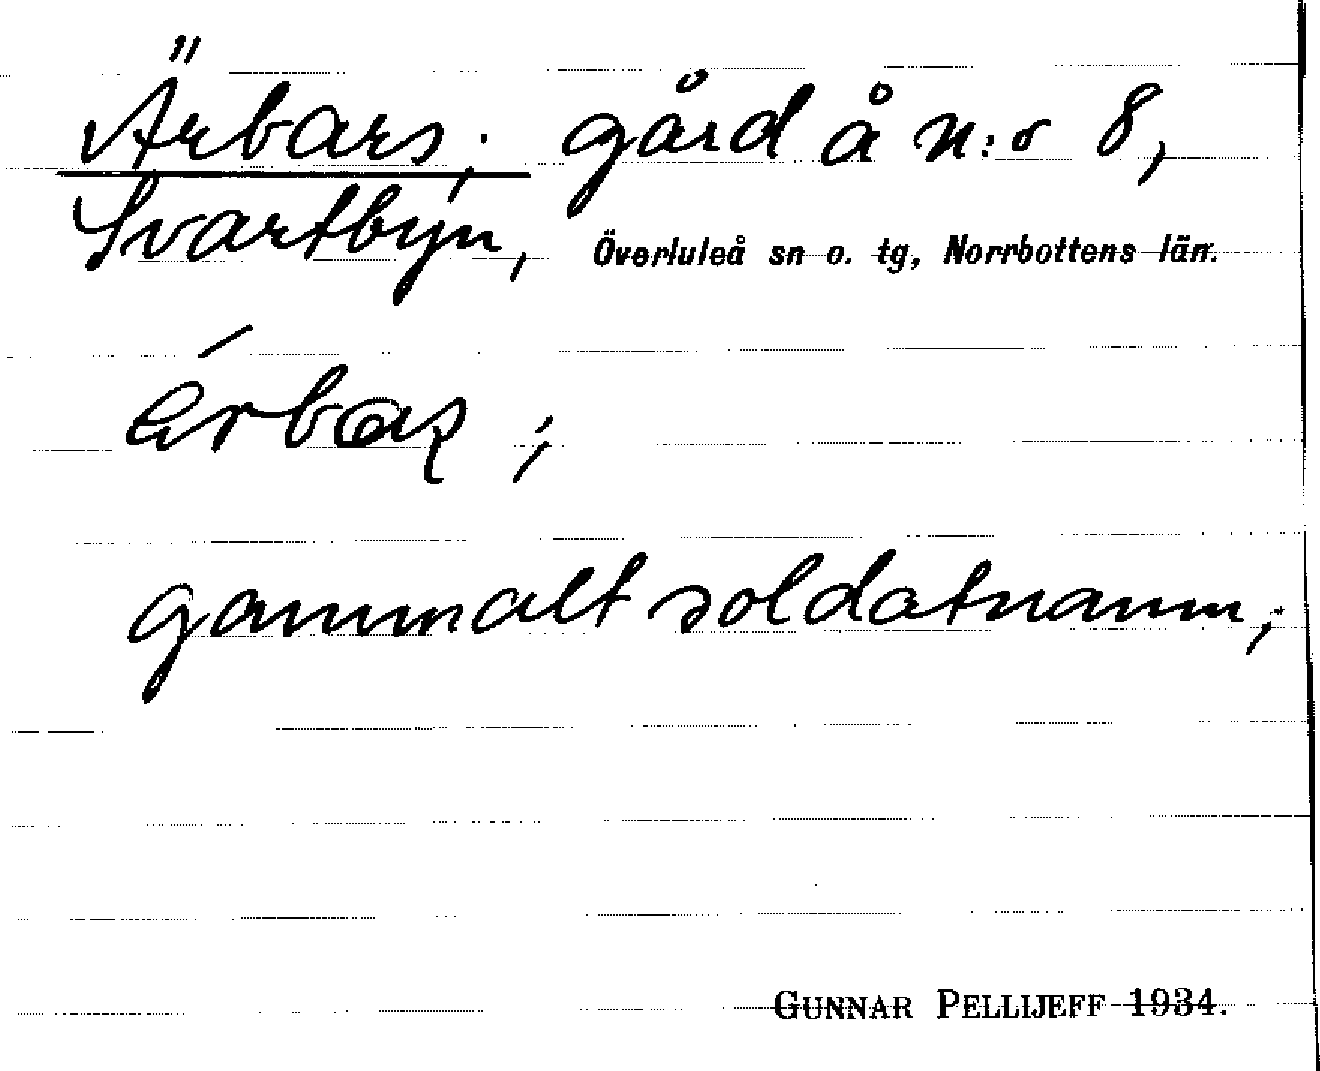 Ärbars; gård å n:o 8,
Svartbyn, Överluleå sn o. tg, Norrbottens län.
gammalt soldatnamn;
GUNNAR PELLIJEFF 1934.